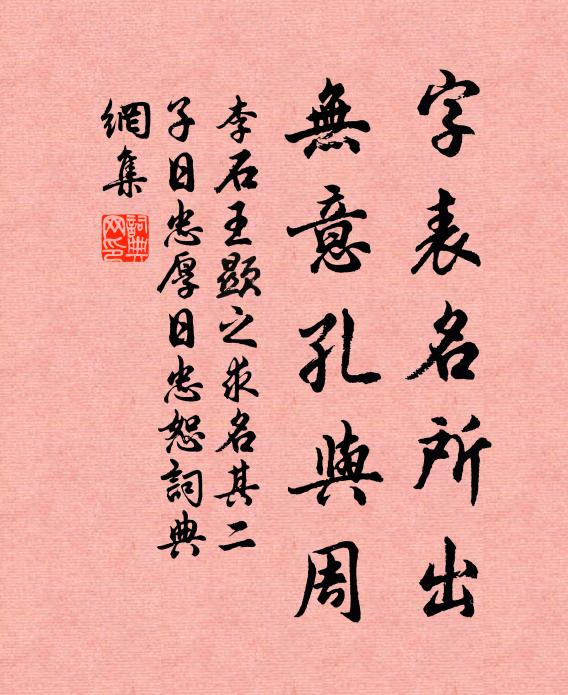 字表名所出
無意孔與周
李石王顯之求名其二
子日忠厚日忠恕詞典
網集
詞典網印